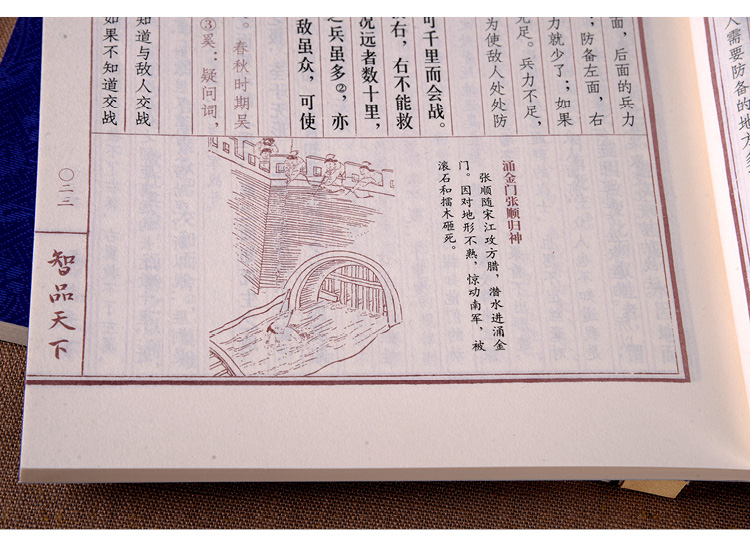 人需要防备的地方
面，后面的兵力
；防备左面，右
力就少了；如果
足。兵力不足，
为使敌人处处防
可千里而会战。
右，右不能救
况远者数十里，
之兵虽多②，亦
敌虽众，可使
。春秋时期吴
③奚：疑问词，
知道与敌人交战
如果不知道交战
涌金门张顺归神
张顺随宋江攻方腊，潜水进涌金
门。因对地形不熟，惊动南军，被
滚石和擂木砸死。
〇二三
智品天下